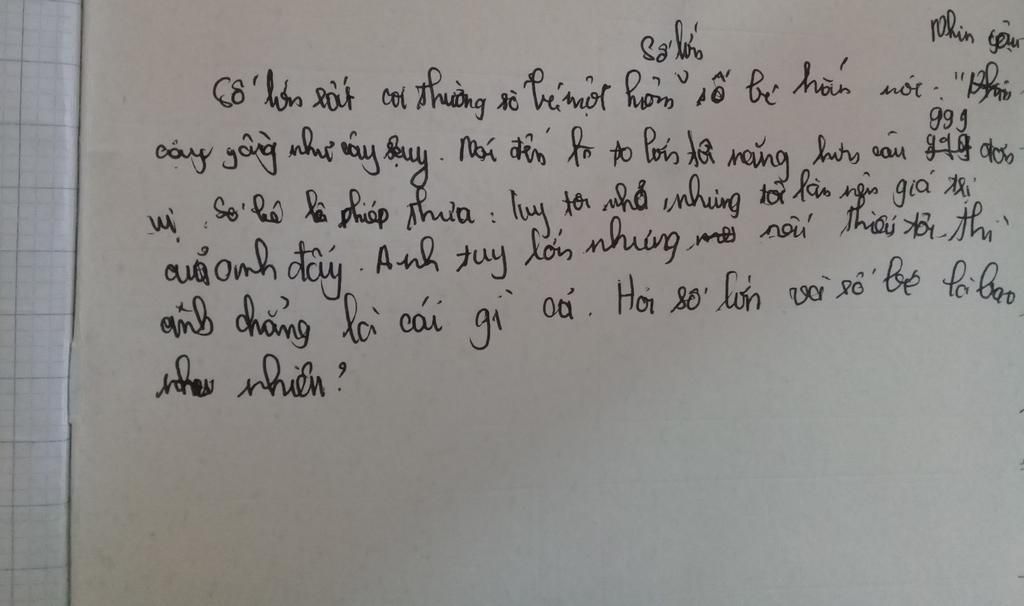 số lớn
Nhìn gầy
Số lớn rất coi thường số bé một hôm số bé hắn nói: "Nhìn
càng gầy như cây suy. Nói đến to lớn tớ năng hơn cậu 999 đơn
vị. Số bé phép thừa: Tuy tôi nhỏ nhưng tôi làm nên giá trị
của anh đấy. Anh tuy lớn nhưng nếu thiếu tôi thì
anh chẳng là cái gì cả. Hỏi số lớn và số bé là bao
nhiên?